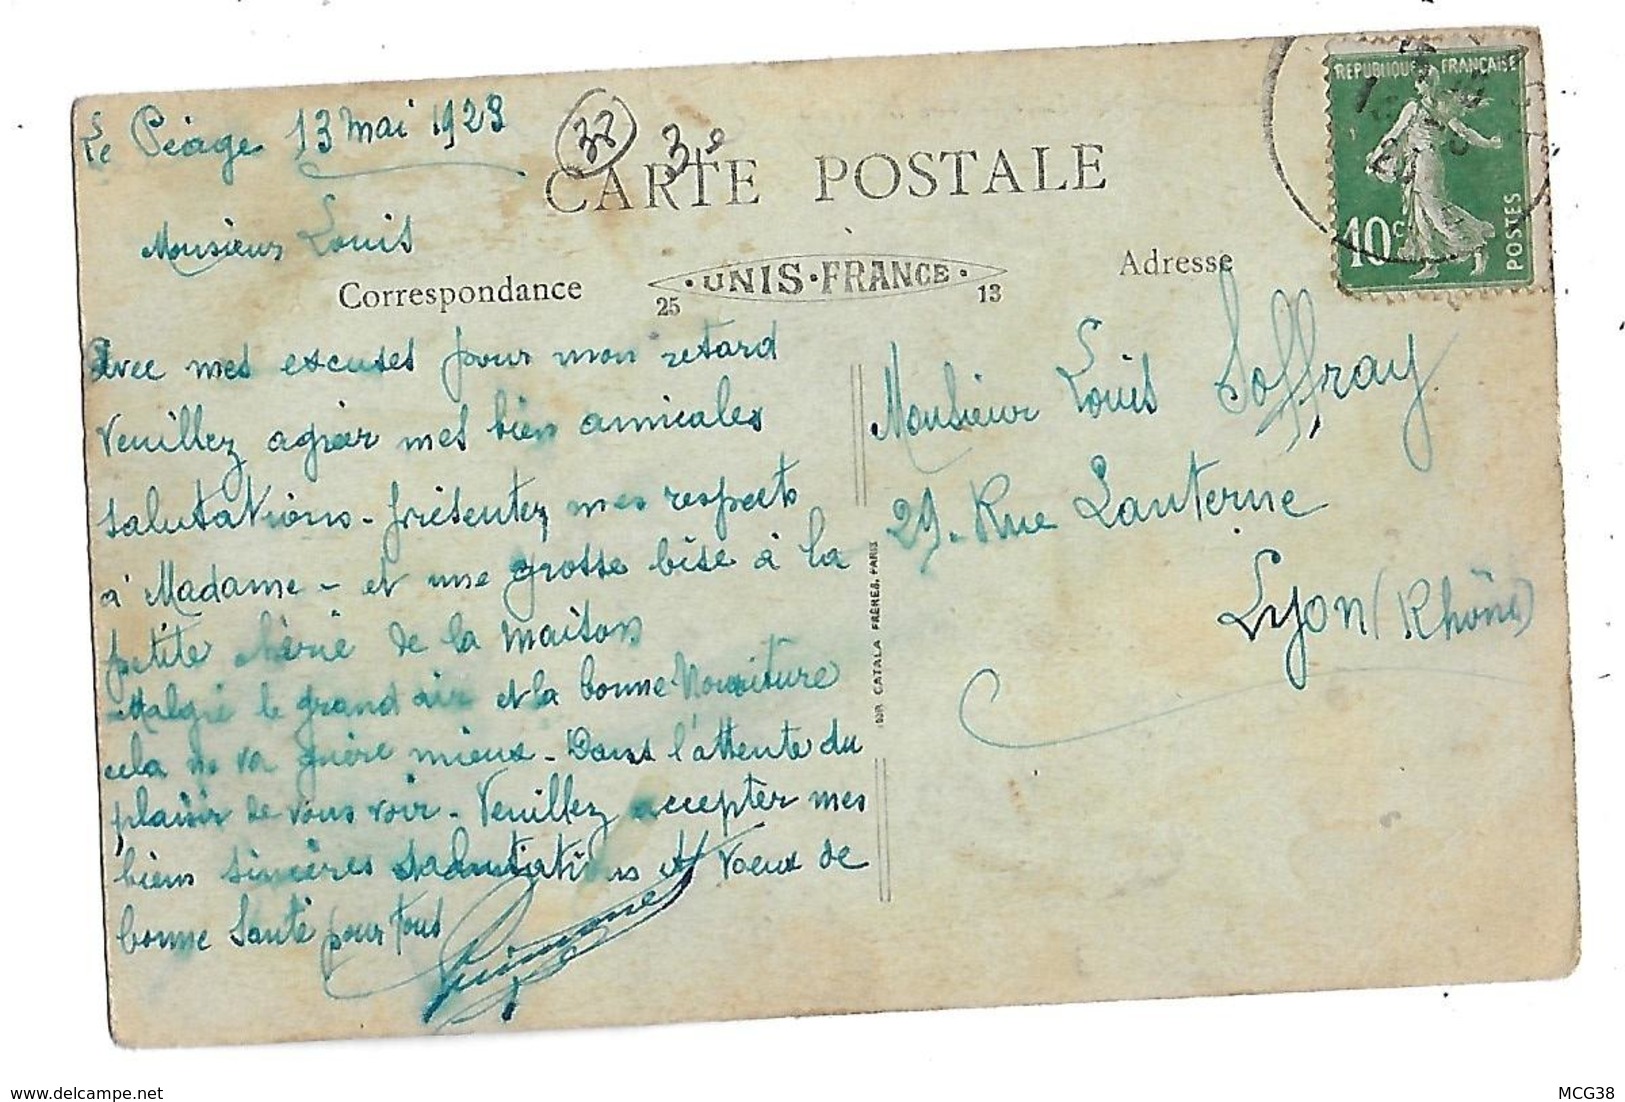 Le Péage 13 mai 1923
38
3e
CARTE POSTALE
REPUBLIQUE FRANÇAISE
10c
POSTES
Monsieur Louis
Correspondance
25
UNIS·FRANCE·
13
Adresse
Avec mes excuses pour mon retard
Veuillez agréer mes bien amicales
salutations - présentez mes respects
à Madame - et une grosse bise à la
petite chérie de la maison
Malgré le grand air et la bonne Nourriture
cela ne va guère mieux - Dans l'attente du
plaisir de vous voir - Veuillez accepter mes
bien sincères salutations et Voeux de
bonne Santé pour tous
Monsieur Louis Soffray
29 - Rue Lanterne
Lyon (Rhône)
IMP. CATALA FRÈRES, PARIS
delcampe.net
MCG38